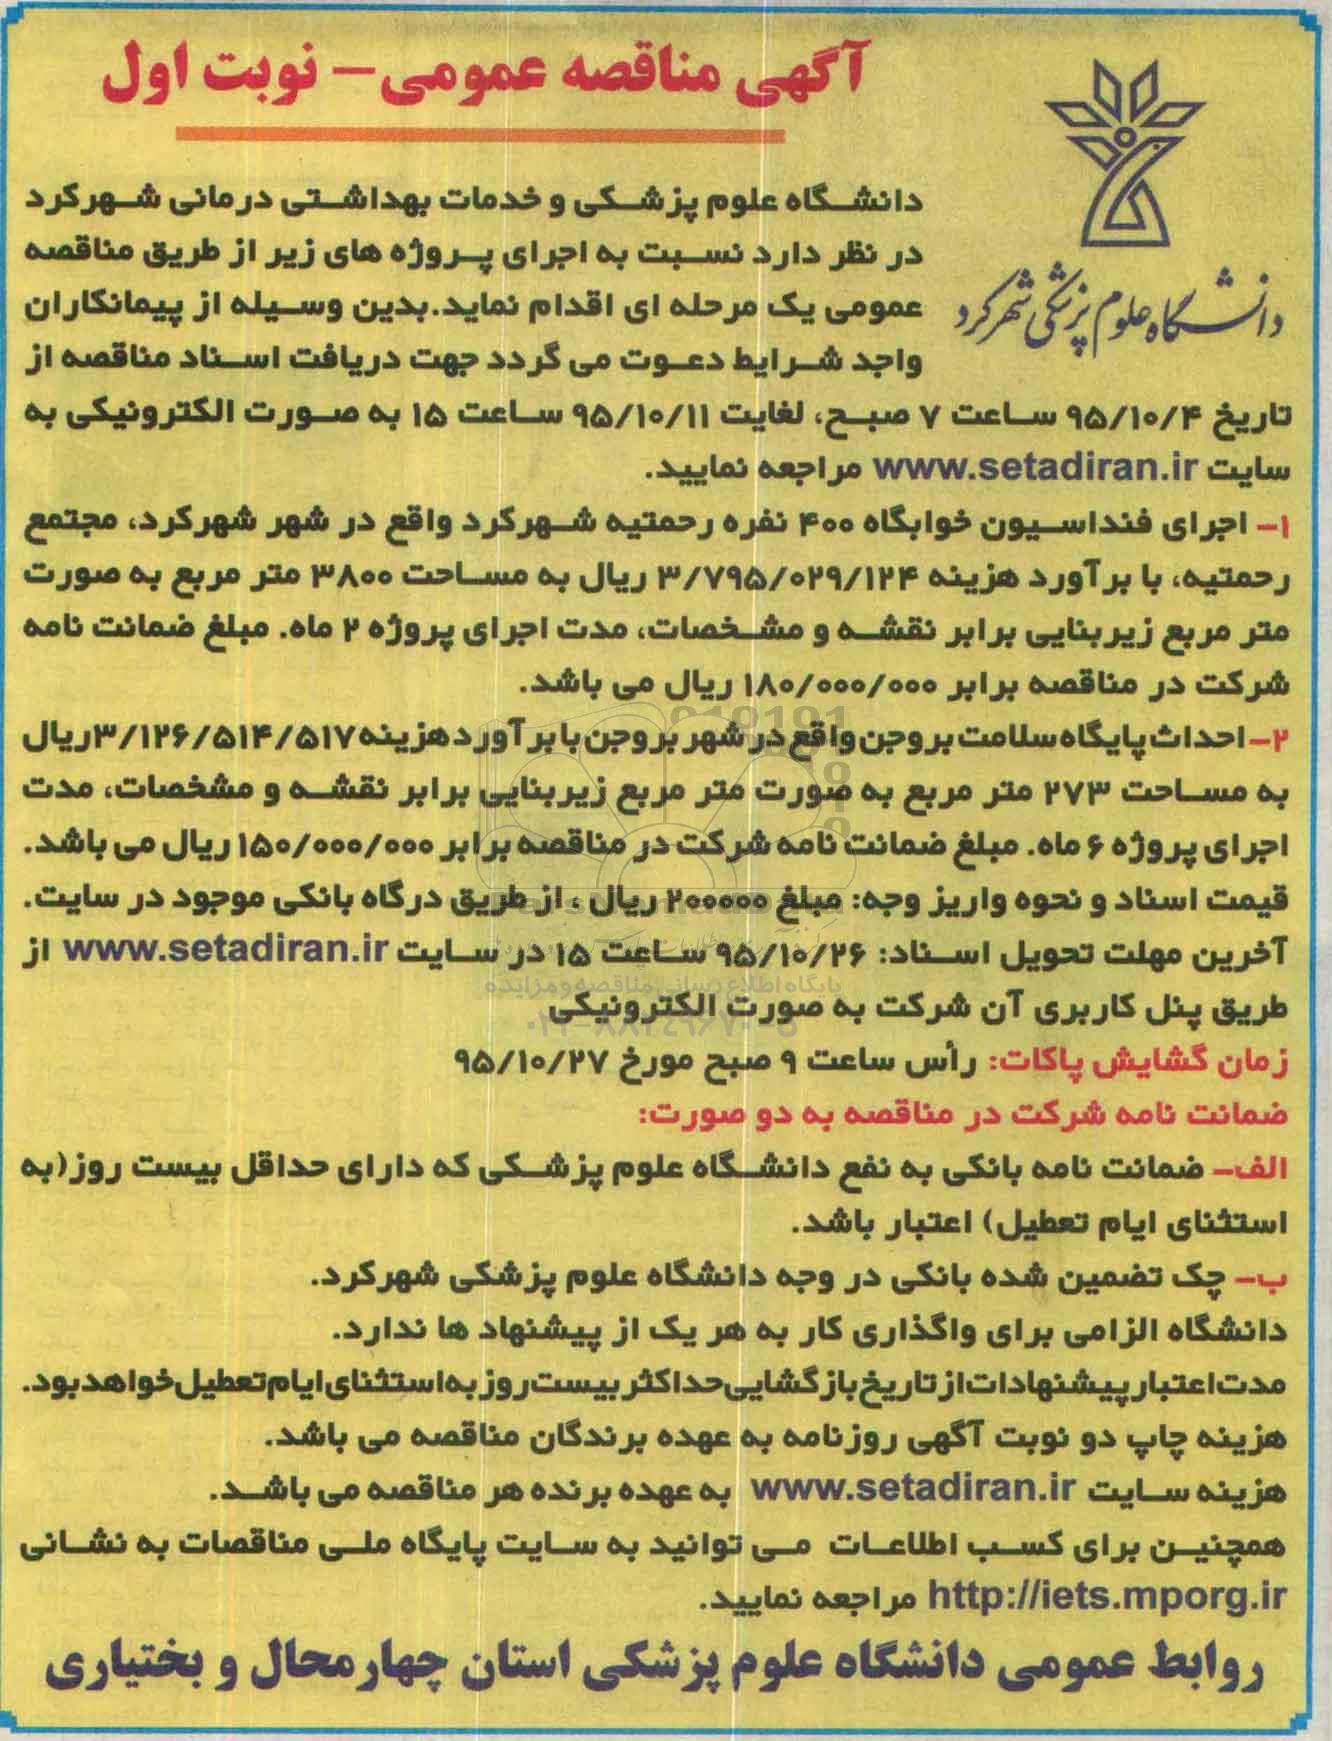 آگهی مناقصه عمومی – نوبت اول
دانشگاه علوم پزشکی شهرکرد
دانشگاه علوم پزشکی و خدمات بهداشتی درمانی شهرکرد
در نظر دارد نسبت به اجرای پروژه های زیر از طریق مناقصه
عمومی یک مرحله ای اقدام نماید.بدین وسیله از پیمانکاران
واجد شرایط دعوت می گردد جهت دریافت اسناد مناقصه از
تاریخ ۹۵/۱۰/۴ ساعت ۷ صبح، لغایت ۹۵/۱۰/۱۱ ساعت ۱۵ به صورت الکترونیکی به
سایت www.setadiran.ir مراجعه نمایید.
۱- اجرای فنداسیون خوابگاه ۴۰۰ نفره رحمتیه شهرکرد واقع در شهر شهرکرد، مجتمع
رحمتیه، با برآورد هزینه ۳/۷۹۵/۰۲۹/۱۲۴ ریال به مساحت ۳۸۰۰ متر مربع به صورت
متر مربع زیربنایی برابر نقشه و مشخصات، مدت اجرای پروژه ۲ ماه. مبلغ ضمانت نامه
شرکت در مناقصه برابر ۱۸۰/۰۰۰/۰۰۰ ریال می باشد.
۲- احداث پایگاه سلامت بروجن واقع در شهر بروجن با برآورد هزینه ۳/۱۲۶/۵۱۴/۵۱۷ریال
به مساحت ۲۷۳ متر مربع به صورت متر مربع زیربنایی برابر نقشه و مشخصات، مدت
اجرای پروژه ۶ ماه. مبلغ ضمانت نامه شرکت در مناقصه برابر ۱۵۰/۰۰۰/۰۰۰ ریال می باشد.
قیمت اسناد و نحوه واریز وجه: مبلغ ۲۰۰۰۰۰ ریال ، از طریق درگاه بانکی موجود در سایت.
آخرین مهلت تحویل اسناد: ۹۵/۱۰/۲۶ ساعت ۱۵ در سایت www.setadiran.ir از
پایگاه اطلاع رسانی مناقصه و مزایده
طریق پنل کاربری آن شرکت به صورت الکترونیکی
زمان گشایش پاکات: رأس ساعت ۹ صبح مورخ ۹۵/۱۰/۲۷
ضمانت نامه شرکت در مناقصه به دو صورت:
الف- ضمانت نامه بانکی به نفع دانشگاه علوم پزشکی که دارای حداقل بیست روز(به
استثنای ایام تعطیل) اعتبار باشد.
ب- چک تضمین شده بانکی در وجه دانشگاه علوم پزشکی شهرکرد.
دانشگاه الزامی برای واگذاری کار به هر یک از پیشنهاد ها ندارد.
مدت اعتبار پیشنهادات از تاریخ بازگشایی حداکثر بیست روز به استثنای ایام تعطیل خواهد بود.
هزینه چاپ دو نوبت آگهی روزنامه به عهده برندگان مناقصه می باشد.
هزینه سایت www.setadiran.ir به عهده برنده هر مناقصه می باشد.
همچنین برای کسب اطلاعات می توانید به سایت پایگاه ملی مناقصات به نشانی
http://iets.mporg.ir مراجعه نمایید.
روابط عمومی دانشگاه علوم پزشکی استان چهارمحال و بختیاری